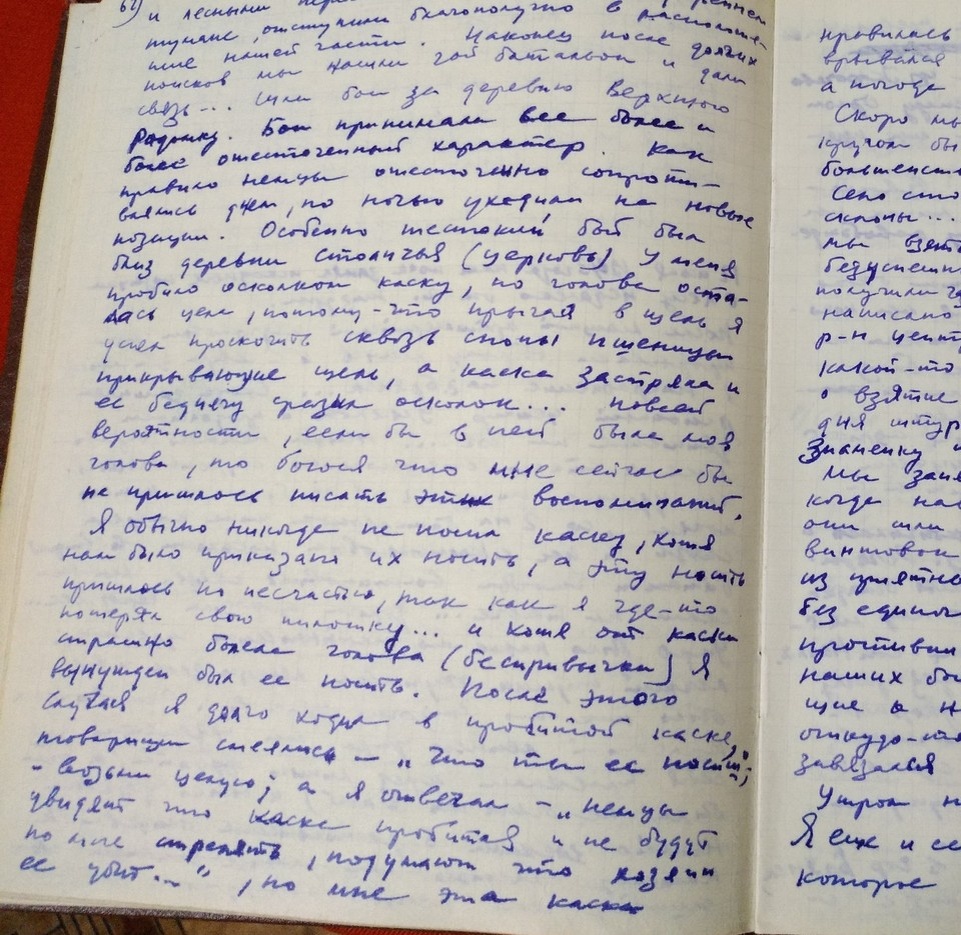 62)
и лесными
тумане отступили благополучно в расположе-
ние нашей части. Наконец после долгих
поисков мы нашли 2ой батальон и дали
связь... Шли бои за деревню Верхнюю
Радомку. Бои принимали все более и
более ожесточенный характер. Как
правило немцы ожесточенно сопроти-
влялись днем, но ночью уходили на новые
позиции. Особенно жестокий бой был
близ деревни Столичья (церковь) У меня
пробило осколком каску, но голова оста-
лась цела, потому-что прыгая в щель я
успел проскочить сквозь снопы пшеницы
прикрывающие щель, а каска застряла и
ее беднягу сразил осколок... повсей
вероятности, если бы в ней была моя
голова, то боюсь что мне сейчас бы
не пришлось писать этих воспоминаний.
Я обычно никогда не носил каску, хотя
нам было приказано их носить, а эту носить
пришлось по несчастью, так как я где-то
потерял свою пилотку... и хотя от каски
страшно болела голова (беспривычки) Я
вынужден был ее носить. После этого
случая я долго ходил в пробитой каске,
товарищи смеялись — „Что ты ее носишь;
- возьми целую; а я отвечал — „немцы
увидят что каска пробитая и не будут
по мне стрелять, подумают что хозяин
ее убит...", но мне эта каска
нравилась
врывался
а погоде
Скоро мы
кругом бы
Сено сто
склоны...
мы взят
безуспешн
получили
написано
р-н цент
какой-то
о взятие
дня штур
Знаменку
Мы заня
когда на
они шли
винтовок
из приятно
без единого
противни
наших бо
щие о н
откудо-то
завязался
Утром н
Я еще и се
которое